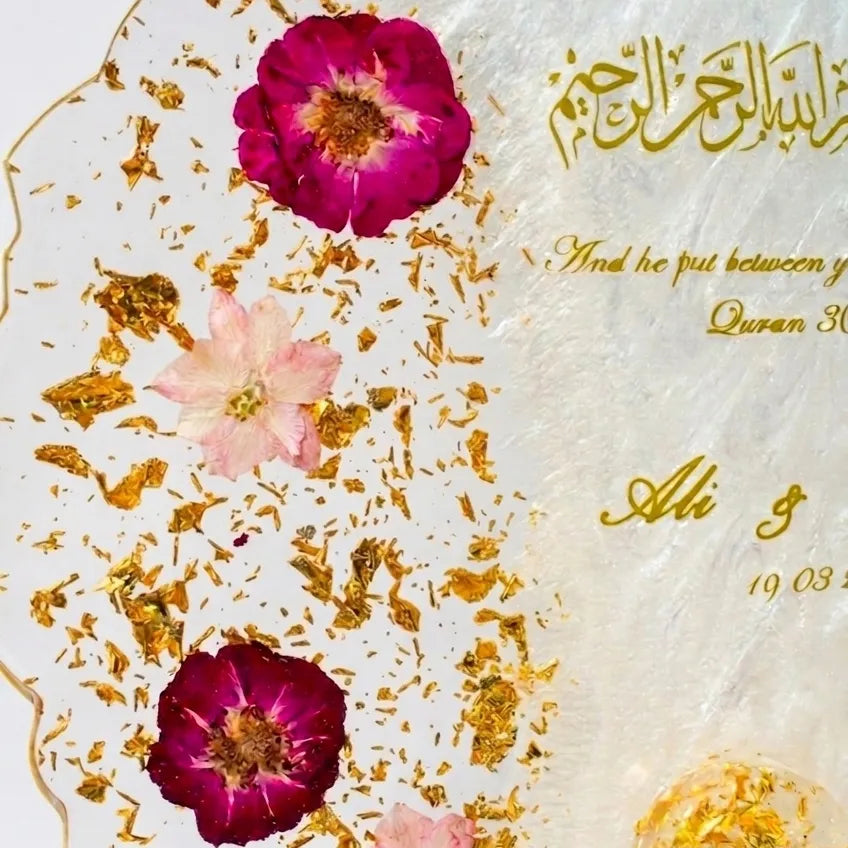 الله الرحمن الرحيم
And he put between
Quran 30
Ali &
19 03